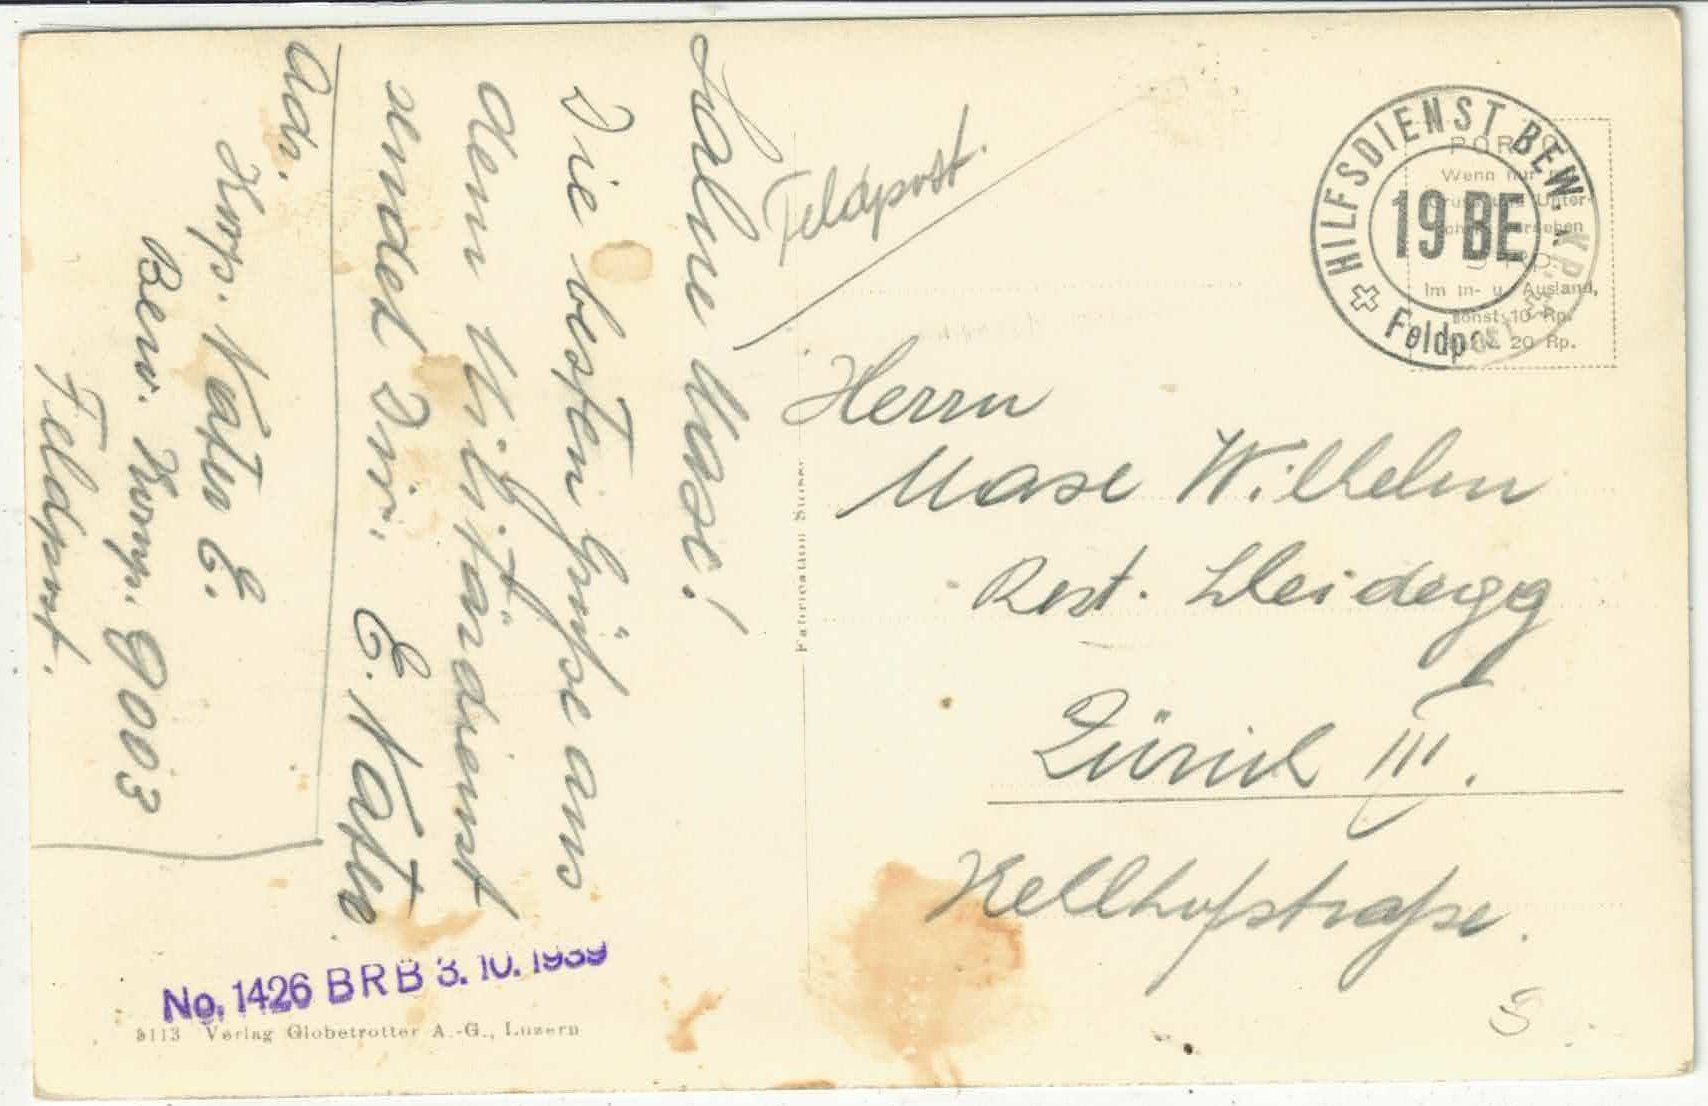 Salue Mase!
Die besten Grüße aus
dem Militärdienst
sendet Dir. E.
Adr.
Korp. E.
Bew. Komp. 9003
Feldpost.
Feldpost.
HILFSDIENST BEW. KP.
19 BE
Feldpost
PORTO
Wenn nur mit
Gruss und Unter-
schrift versehen
5 Rp.
Im In- u. Ausland,
sonst 10 Rp.
20 Rp.
Herrn
Mase Wilhelm
Rest. Heidegg
Zürich III.
Kellhofstraße.
Fabrication Suisse
No. 1426 BRB 3. 10. 1939
Verlag Globetrotter A.-G., Luzern